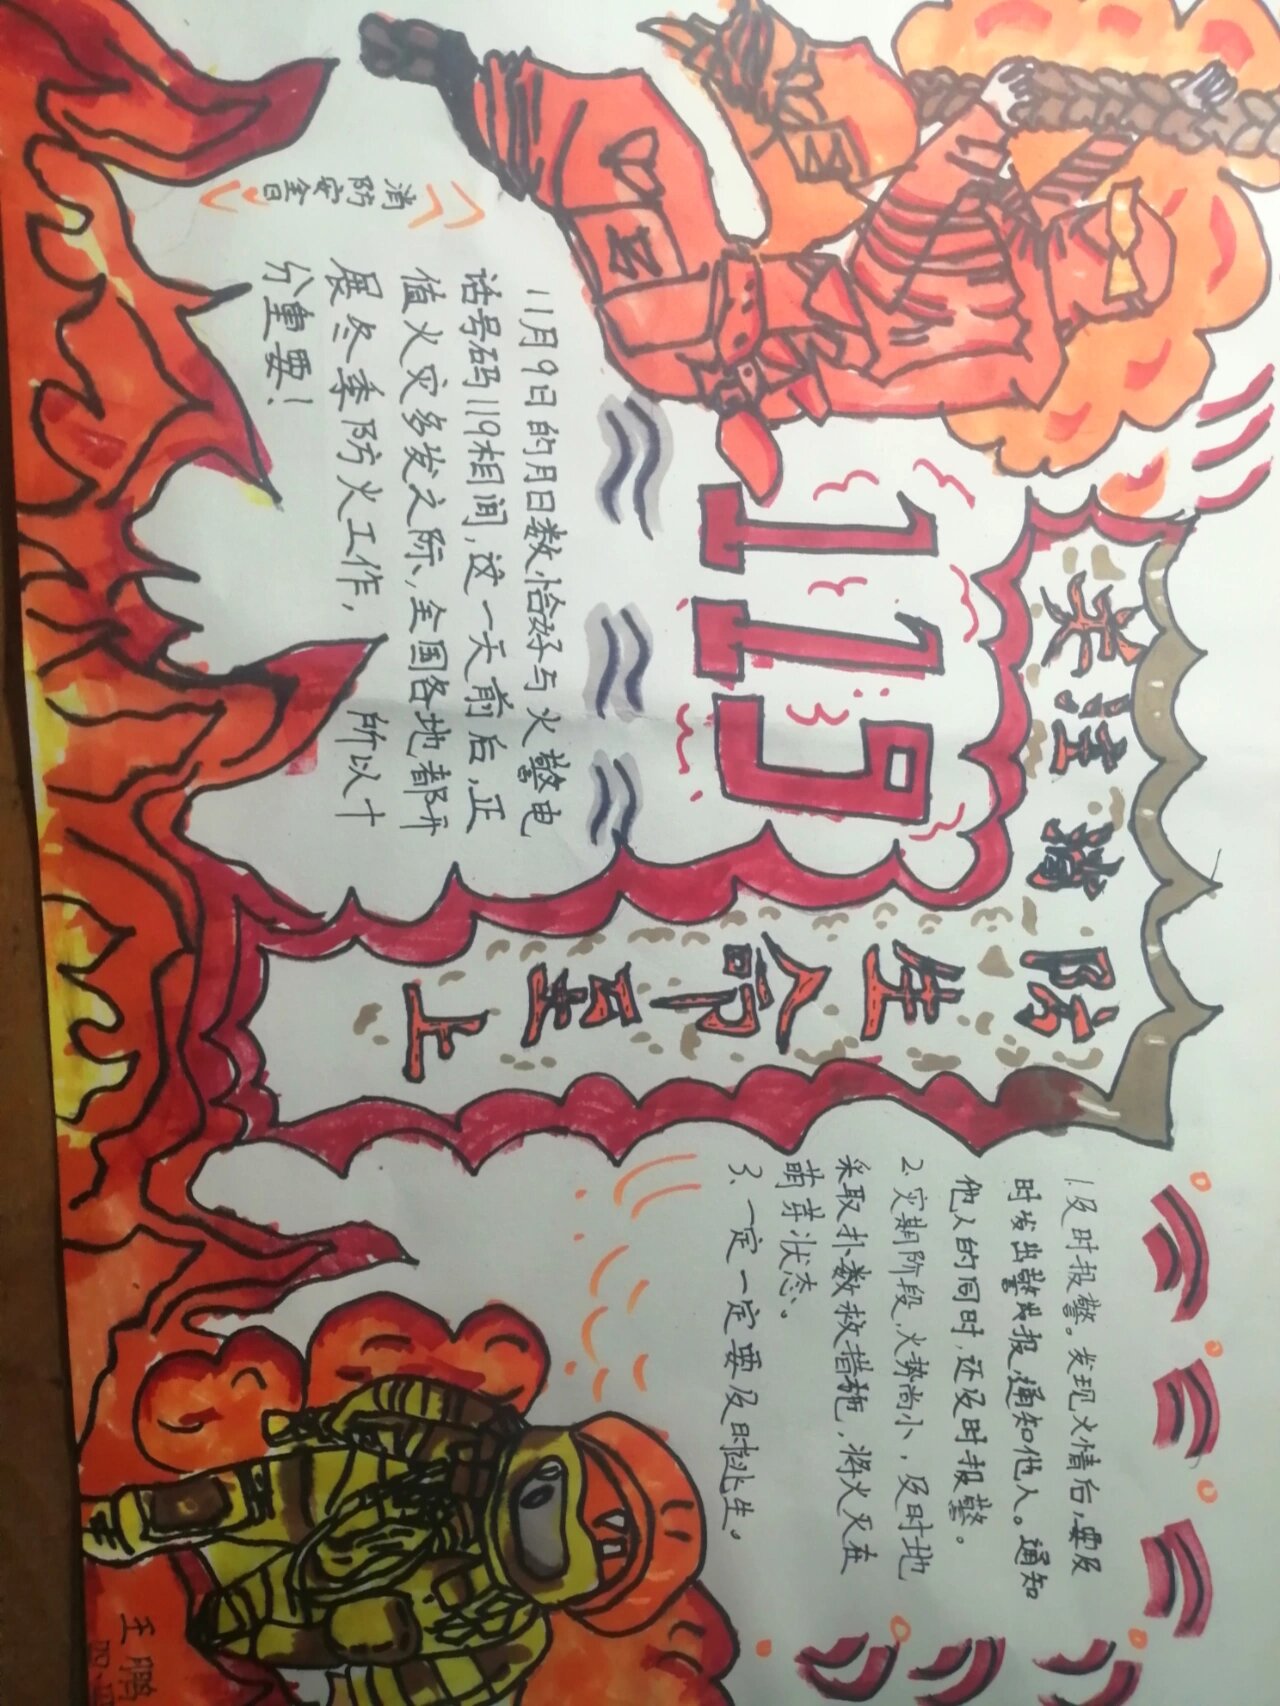 关注消防
生命至上
119
消防安全日
11月9日的月日数恰好与火警电
话号码119相同，这一天前后，正
值火灾多发之际，全国各地都开
展冬季防火工作，所以十
分重要！
1.及时报警。发现火情后，要及
时发出警报，通知他人。通知
他人的同时，还及时报警。
2.灾期阶段，火势尚小，及时地
采取扑救措施，将火灭在
萌芽状态。
3、一定一定要及时逃生。
王鹏